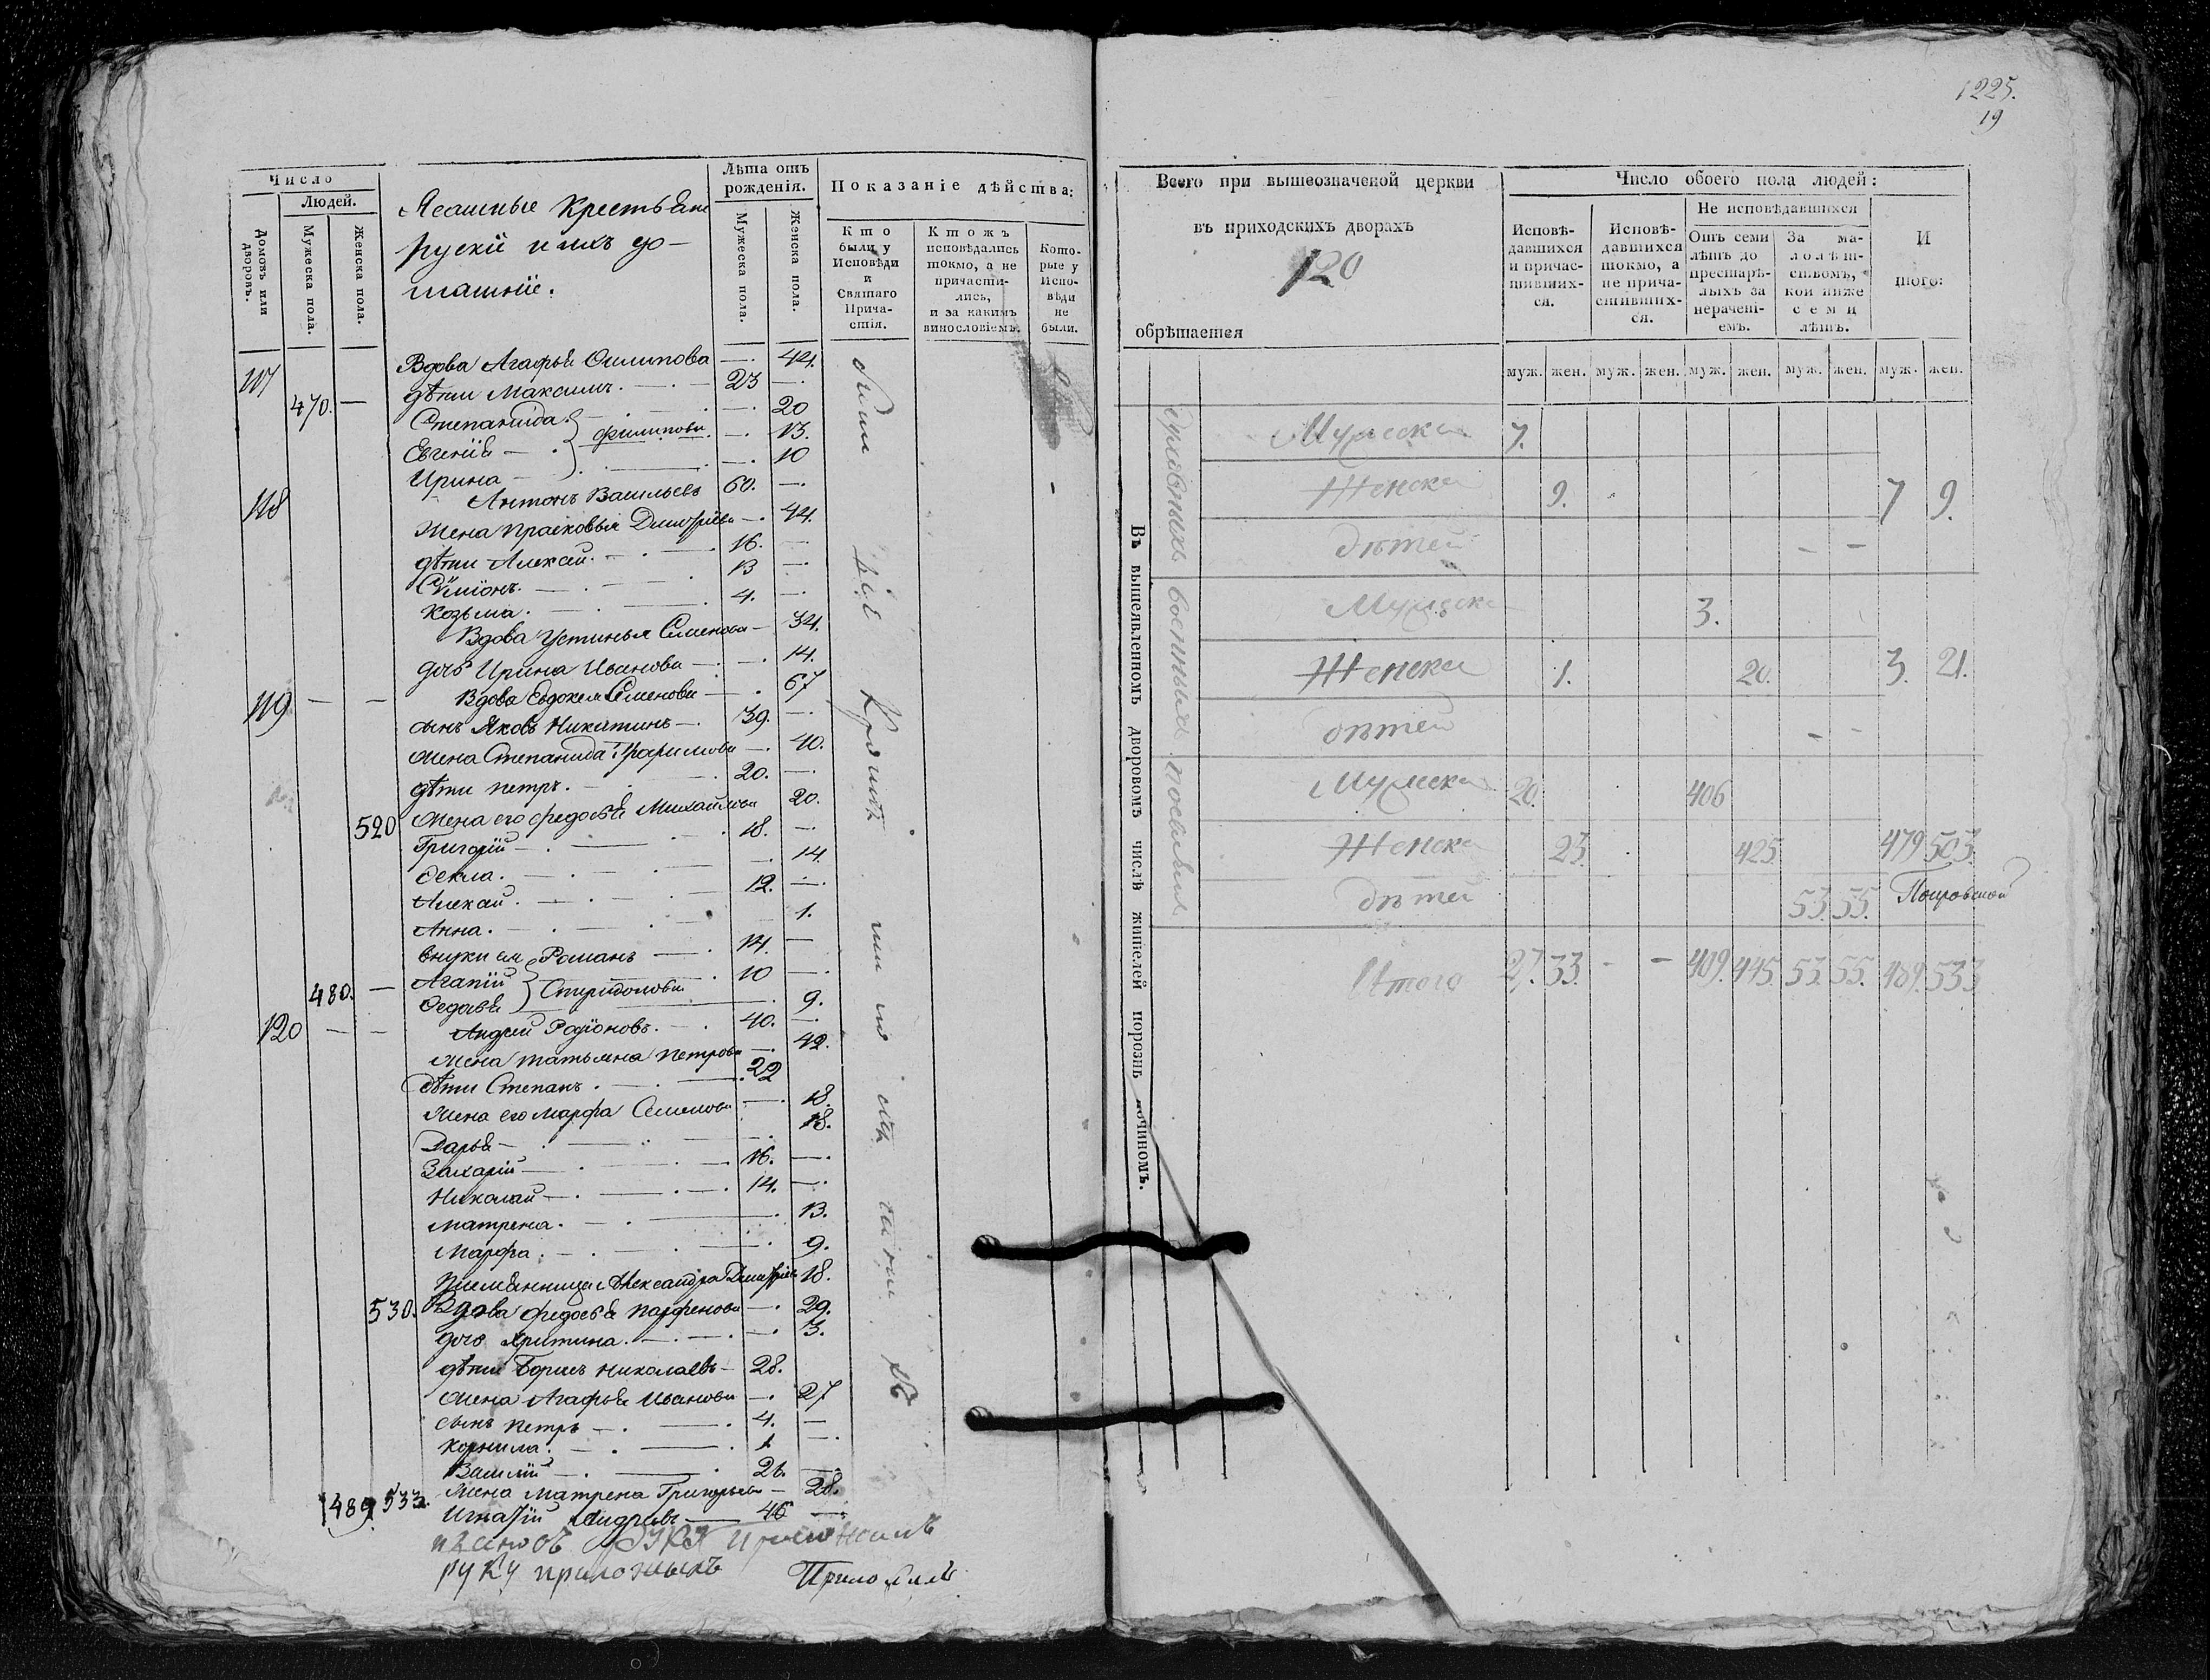 Число
Людей.
Домовъ или дворовъ.
Мужеска пола.
Женска пола.
Ясашные Крестьяне
руские и ихъ до-
машние.
Лѣта отъ рожденія.
Мужеска пола.
Женска пола.
Показаніе дѣйства:
Кто были у Исповѣди и Святаго Прича-стія.
Ктожъ исповѣдались токмо, а не причасти-лись, и за какимъ винословіемъ.
Кото-рые у Испо-вѣди не были.
117 Вдова Агафья Филипова — 44.
470. — дѣти Максимъ. — 23 —
Степанида — 20
Евгения — } филипови — 13.
Ирина — 10
118 Антонъ Васильевъ 60. —
Жена Прасковья Дмитриева — 44.
дѣти Алексѣй. — 16. —
Симионъ. — 13 —
Козьма. — 4. —
Вдова Устинья Семенова — 34.
дочь Ирина Иванова — 14.
119 — — Вдова Евдокея Семенова — 67
сынъ Яковъ Никитинъ — 39. —
Жена Степанида Трофимова — 40.
дѣти петръ. — 20. —
520 Жена его федосья Михайлова 20.
Григорий — 18. —
Фекла. — 14
Алексѣй. — 12. —
Анна. — 1.
внуки ея Романъ — 14. —
480. — Агапий } Спиридонови 10 —
Федосья — 9.
120 — — Андрей Родионовъ. — 40. —
Жена татьяна петрова — 42.
дѣти Степанъ. — 22
Жена его марфа Семенова — 18.
Дарья — 18.
Захарий — 16. —
Николай — 14. —
матрена. — 13.
Марфа. — 9.
племянница Александра 18.
530. Вдова федосья парфенова — 29.
дочь — 3.
дѣти Борисъ николаевъ — 28.
Жена Агафья Иванова — 27
сынъ петръ — 4. —
корнила. — 1 —
Василий — 26. —
489 533. Жена матрена Григорьева — 28.
Игнатий Андреевъ — 46 —
руку приложилъ
1225.
19
Всего при вышеозначеной церкви
въ приходскихъ дворахъ
120
обрѣтается
Число обоего пола людей:
Исповѣ-давшихся и причас-тивших-ся.
Исповѣ-давшихся токмо, а не прича-стивших-ся.
Не исповѣдавшихся
Отъ семи лѣтъ до престарѣ-лыхъ за нерачені-емъ.
За ма-лолѣт-ствомъ, кои ниже семи лѣтъ.
И того:
муж. жен. муж. жен. муж. жен. муж. жен. муж. жен.
Въ вышеявленномъ дворовомъ числѣ жителей порознь починомъ.
военныхъ
Мужеска 7.
Женска 9. 7 9.
дѣтей — —
Мужеска 3.
Женска 1. 20. 3. 21.
дѣтей — —
Мужеска 20. 406
Женска 23. 425. 479 503.
дѣтей 53. 55.
Итого 27. 33. — — 409. 445. 53. 55. 489. 533